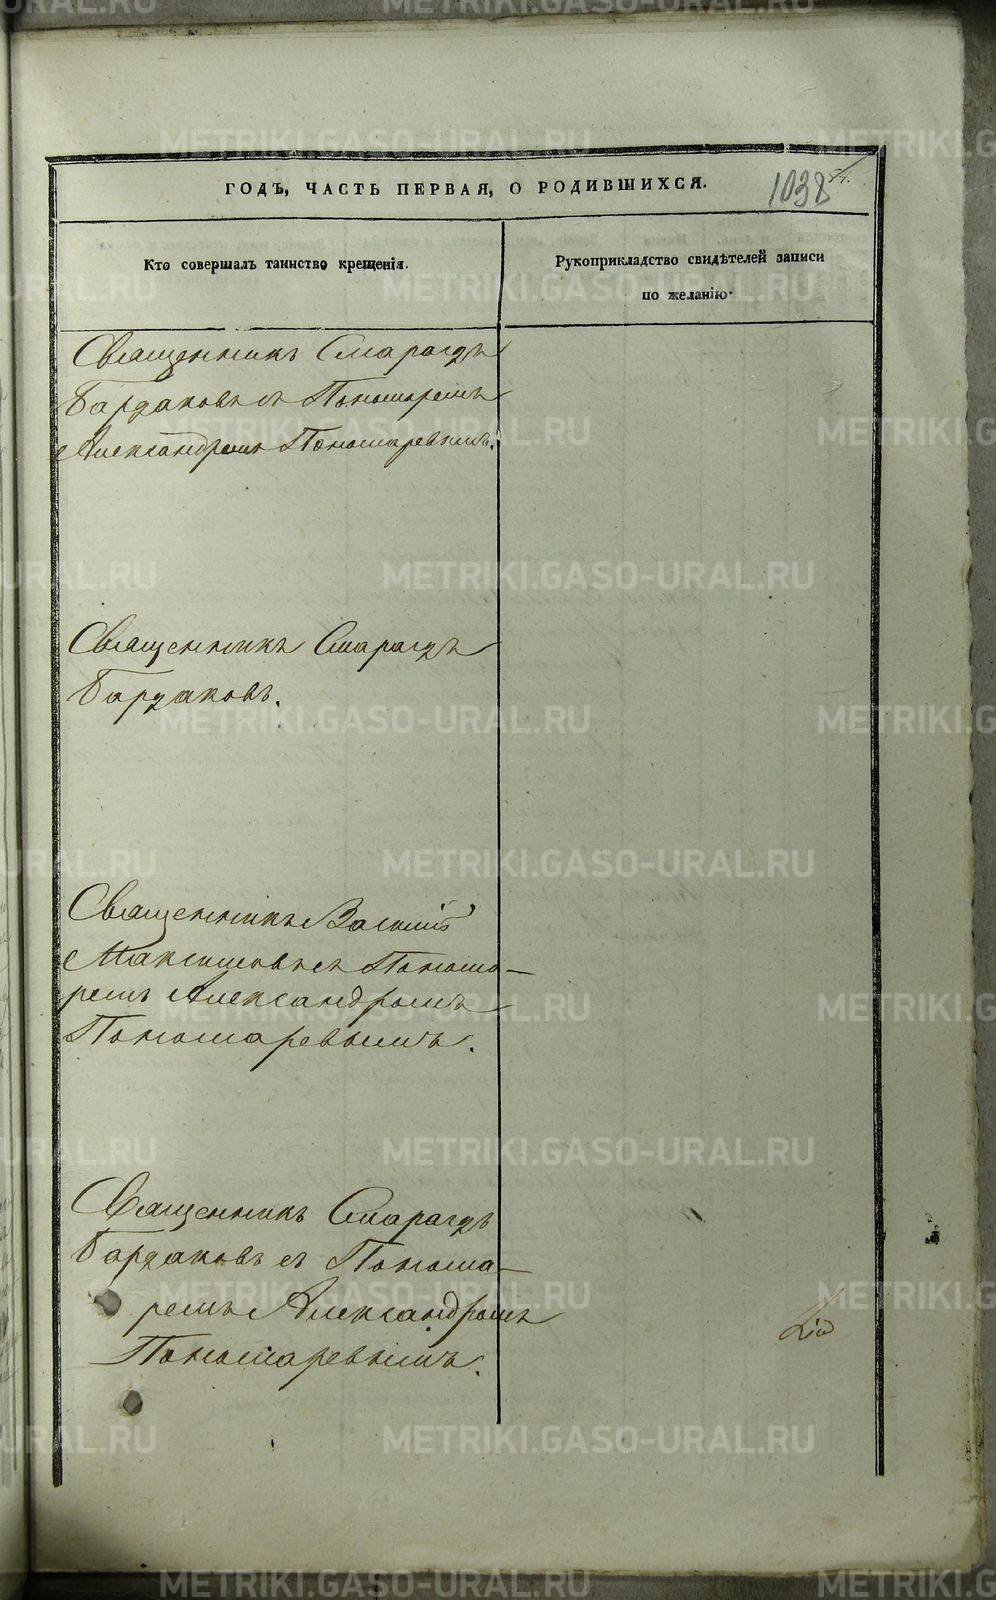 ГОДЪ, ЧАСТЬ ПЕРВАЯ, О РОДИВШИХСЯ.
1038
Кто совершалъ таинство крещенія.
Рукоприкладство свидѣтелей записи
по желанію.
Священникъ Смарагдъ
Бардаковъ съ Пономаремъ
Александромъ Пономаревымъ.
Священникъ Смарагдъ
Бардаковъ.
Священникъ Василій
Максимовъ съ Понома-
ремъ Александромъ
Пономаревымъ.
Священникъ Смарагдъ
Бардаковъ съ Понома-
ремъ Александромъ
Пономаревымъ.
METRIKI.GASO-URAL.RU